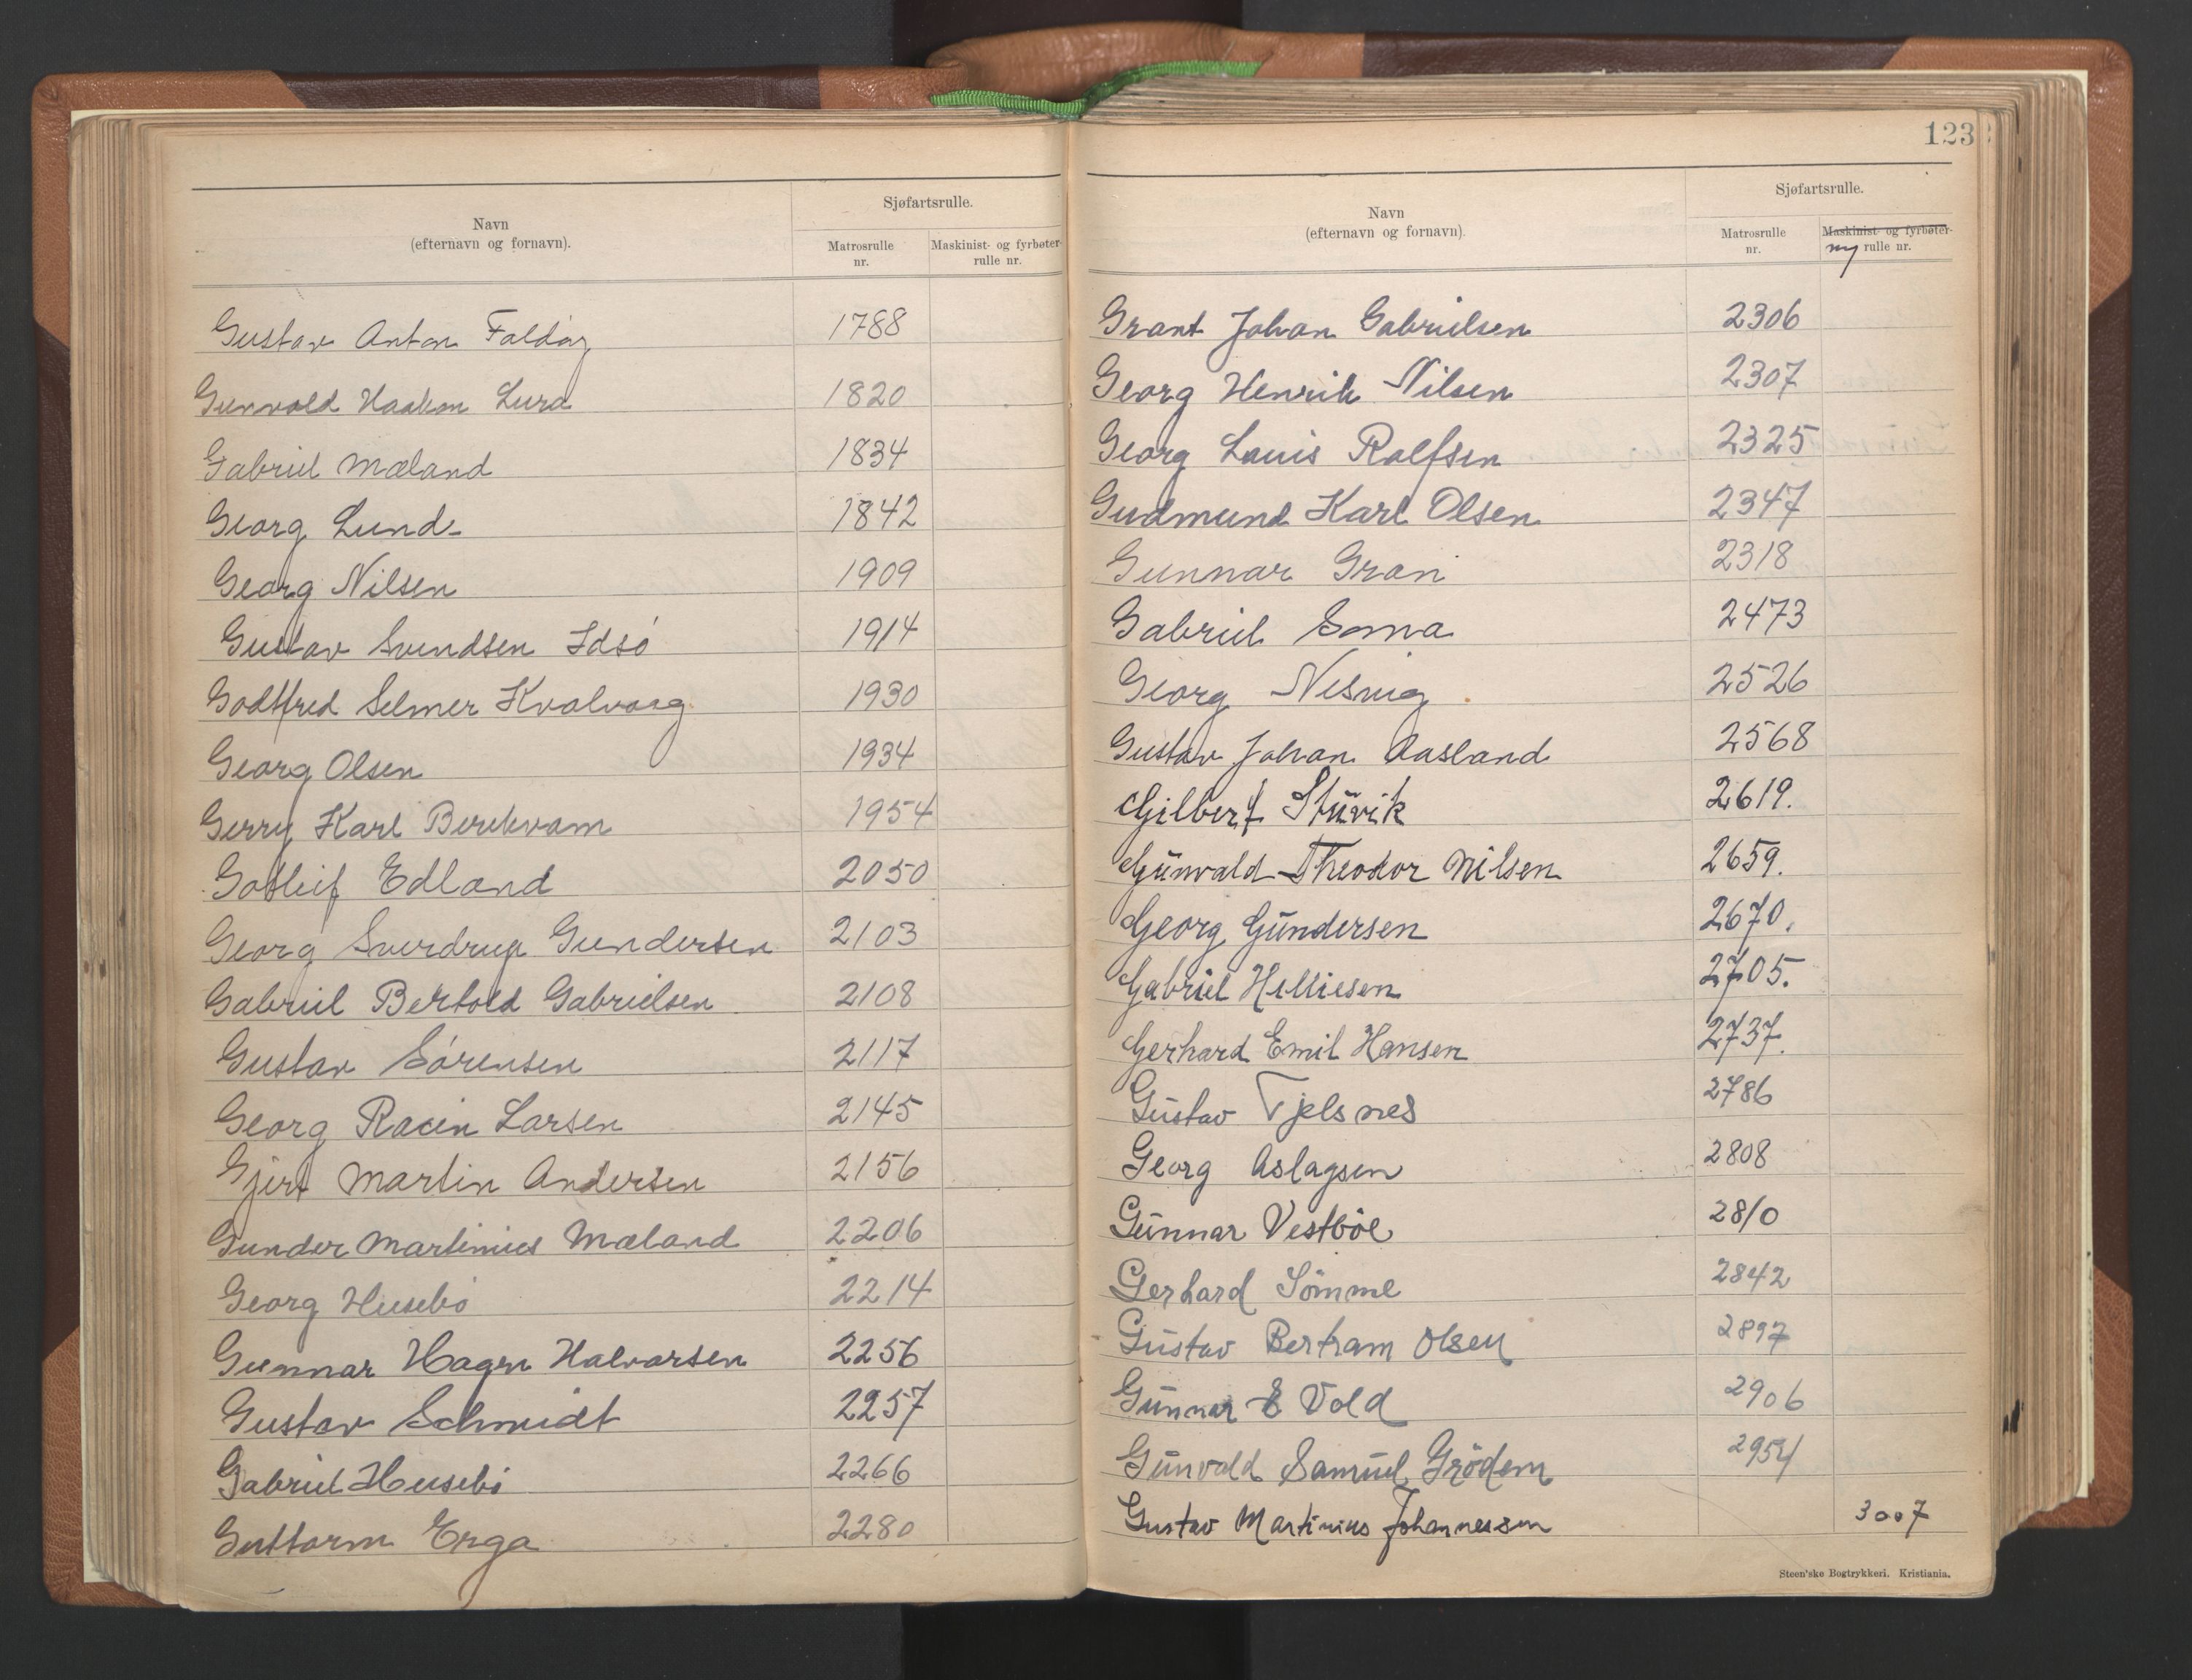 Navn
(efternavn og fornavn).
Sjøfartsrulle.
Matrosrulle nr.
Maskinist- og fyrbøter- rulle nr.
Gustav Anton Faldøy 1788
Gunvald Haakon Lura 1820
Gabriel Mæland 1834
Georg Lunde 1842
Georg Nilsen 1909
Gustav Svendsen Idsö 1914
Godtfred Selmer Kvalvaag 1930
Georg Olsen 1934
Gerry Karl Berekvam 1954
Gotleif Edland 2050
Georg Sverdrup Gundersen 2103
Gabriel Bertold Gabrielsen 2108
Gustav Sörensen 2117
Georg Racin Larsen 2145
Gjert Martin Andersen 2156
Gunder Martinius Mæland 2206
Georg Husebö 2214
Gunnar Hagen Halvorsen 2256
Gustav Schmidt 2257
Gabriel Husebö 2266
Guttorm Erga 2280
123
Navn
(efternavn og fornavn).
Sjøfartsrulle.
Matrosrulle nr.
Maskinist- og fyrbøter-
ny rulle nr.
Grant Johan Gabrielsen 2306
Georg Henrik Nilsen 2307
Georg Louis Rolfsen 2325
Gudmund Karl Olsen 2347
Gunnar Grani 2318
Gabriel Soma 2473
Georg Nesvig 2526
Gustav Johan Aasland 2568
Gilbert Stüvik 2619.
Günvald Theodor Nilsen 2659.
Georg Gündersen 2670.
Gabriel Helliesen 2705.
Gerhard Emil Hansen 2737.
Güstav Tjelsnes 2786
Georg Aslagsen 2808
Günnar Vestböe 2810
Gerhard Sömme 2842
Güstav Bertram Olsen 2897
Günnar E Vold 2906
Günvald Samüel Grödem 2954
Gustav Martinius Johannessen 3007
Steen'ske Bogtrykkeri. Kristiania.